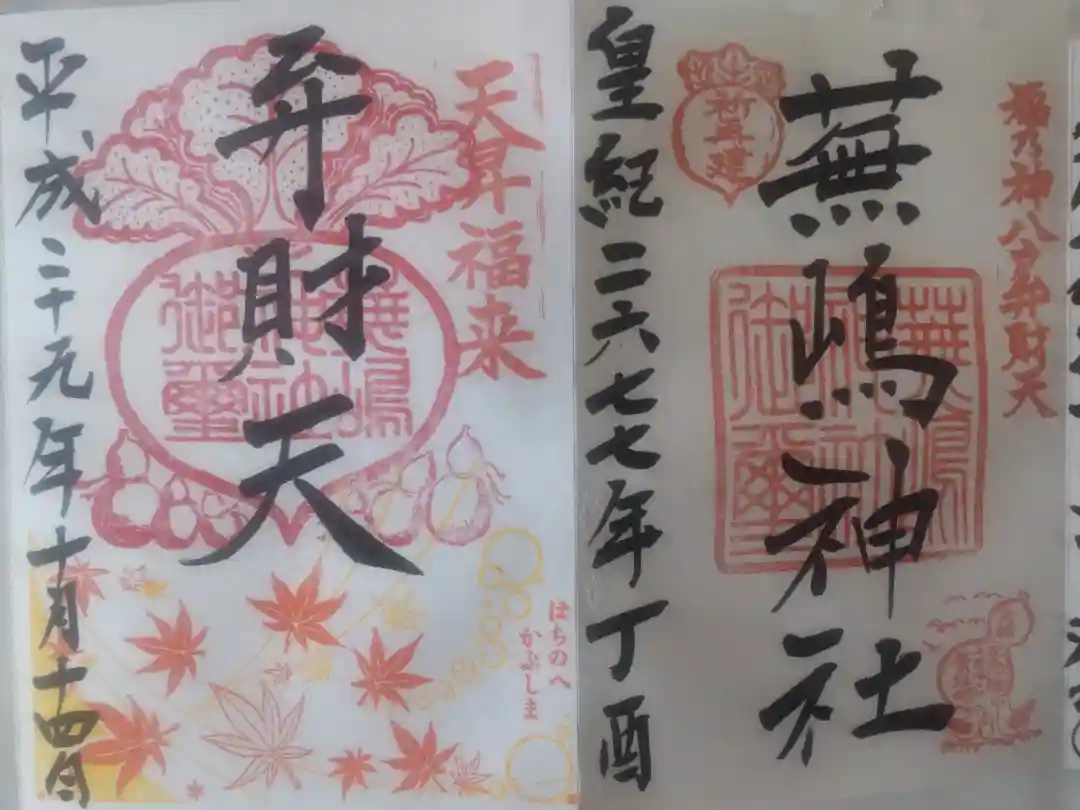 天昇福来
弁財天
平成二十九年十月十四日
蕪嶋神社御璽
はちのへ
かぶしま
福乃神八大弁財天
蕪嶋神社
新再建
皇紀二六七七年丁酉
蕪嶋神社御璽